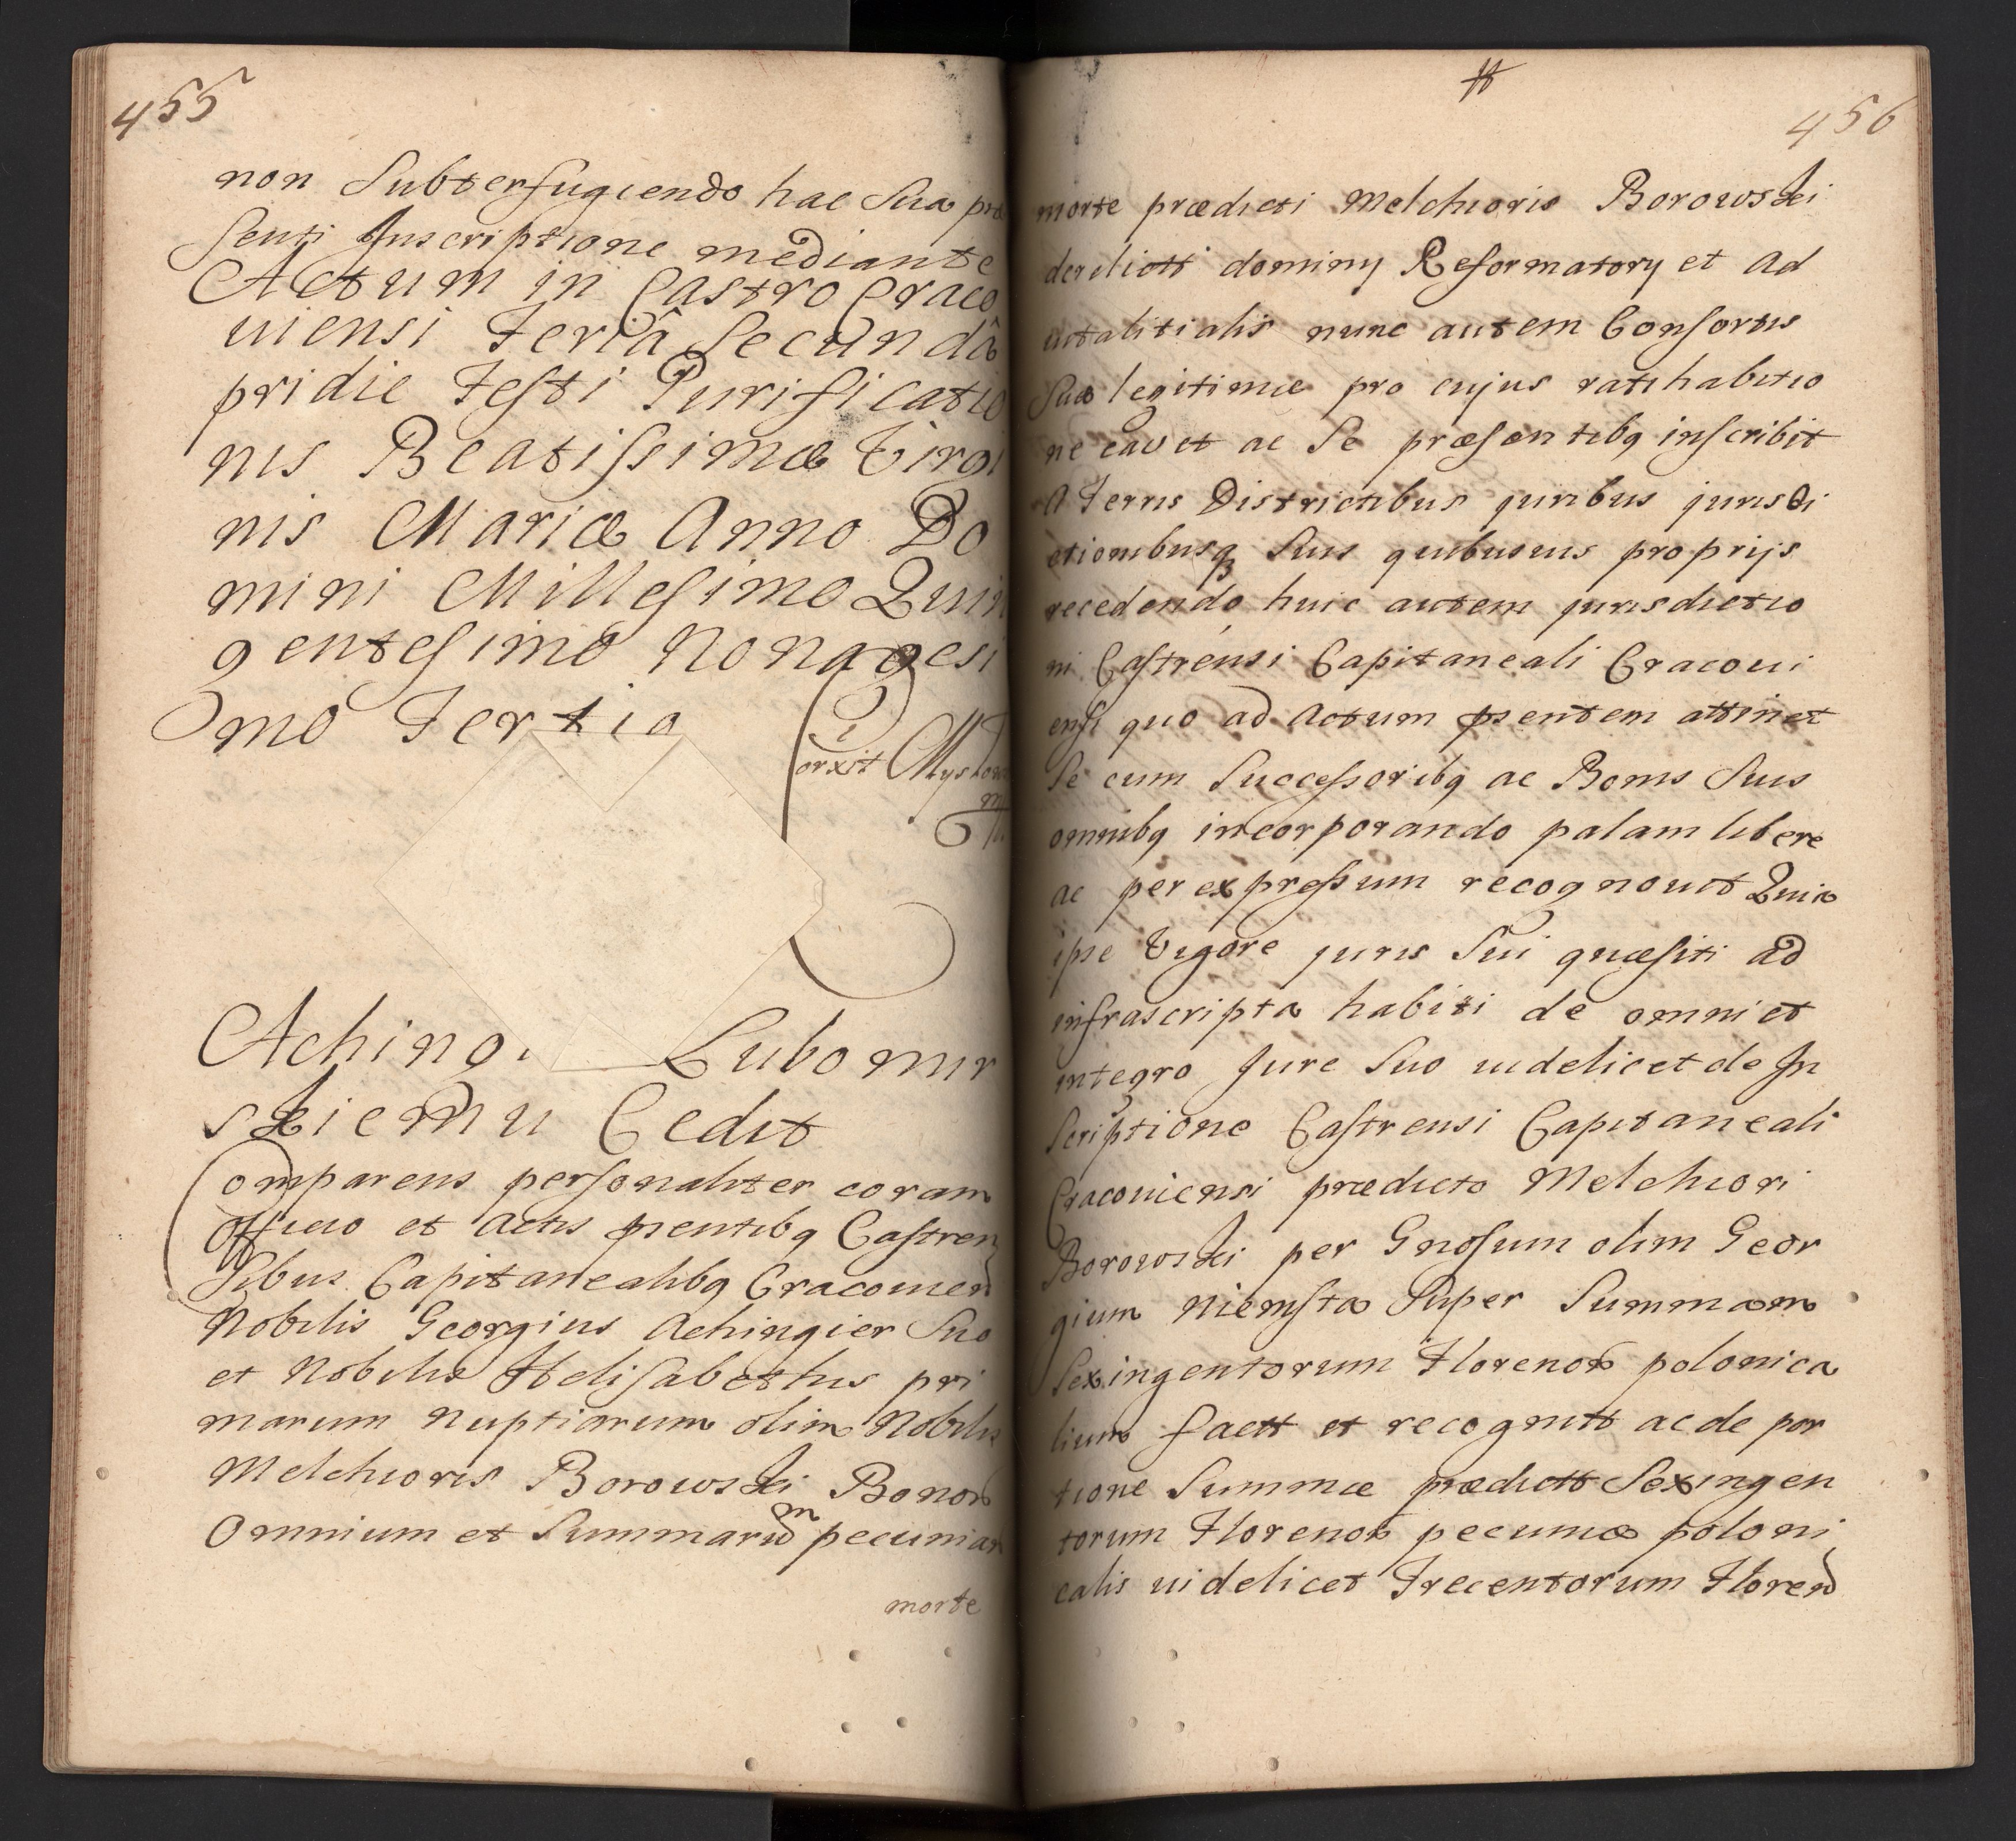 455
non Subterfugiendo hac Sua præ
senti Inscriptione mediante
Actum in Castro Craco
uiensi Feriâ Secundâ
pridie Festi Purificatio
nis Beatissimæ Virgi
nis Mariæ Anno Do
mini Millesimo Quin
gentesimo Nonagesi
mo Tertio
Corxit
Aching. Lubomir
skiemu Cedit
Comparens personaliter coram
Officio et Actis pntibq Castren
sibus Capitanealibq Cracouien
Nobilis Georgius Achingier Suo
et Nobilis Helisabethis pri
marum nuptiarum olim Nobilis
Melchioris Borowski Bonor
Omnium et Summaru pecuniar
morte
#
456
morte prædicti Melchioris Borowski
derelictt dominy Reformatory et ad
uitalitialis nunc autem Consortis
Suæ legitimæ pro cujus ratihabitio
ne cauet ac Se præsentibq inscribit
A Terris Districtibus juribus jurisdi
ctionibusq Suis quibusuis proprijs
recedendo huic autem jurisdictio
ni Castrensi Capitaneali Cracoui
ensi quo ad Actum psentem attinet
Se cum Successoribq ac Bonis Suis
omnibq incorporando palam libere
ac per expressum recognouit Quia
ipse Vigore juris Sui quæsiti ad
infrascripta habiti de omni et
integro Jure Suo uidelicet de In
scriptione Castrensi Capitaneali
Cracouiensi prædicto Melchiori
Borowski per Gnosum olim Geor
gium Niemsta Super Summam
Sexingentorum Florenor polonica
lium factt et recognitt ac de por
tione Summæ prædictt Sexingen
torum Florenor pecuniæ poloni
calis uidelicet Trecentorum Floren